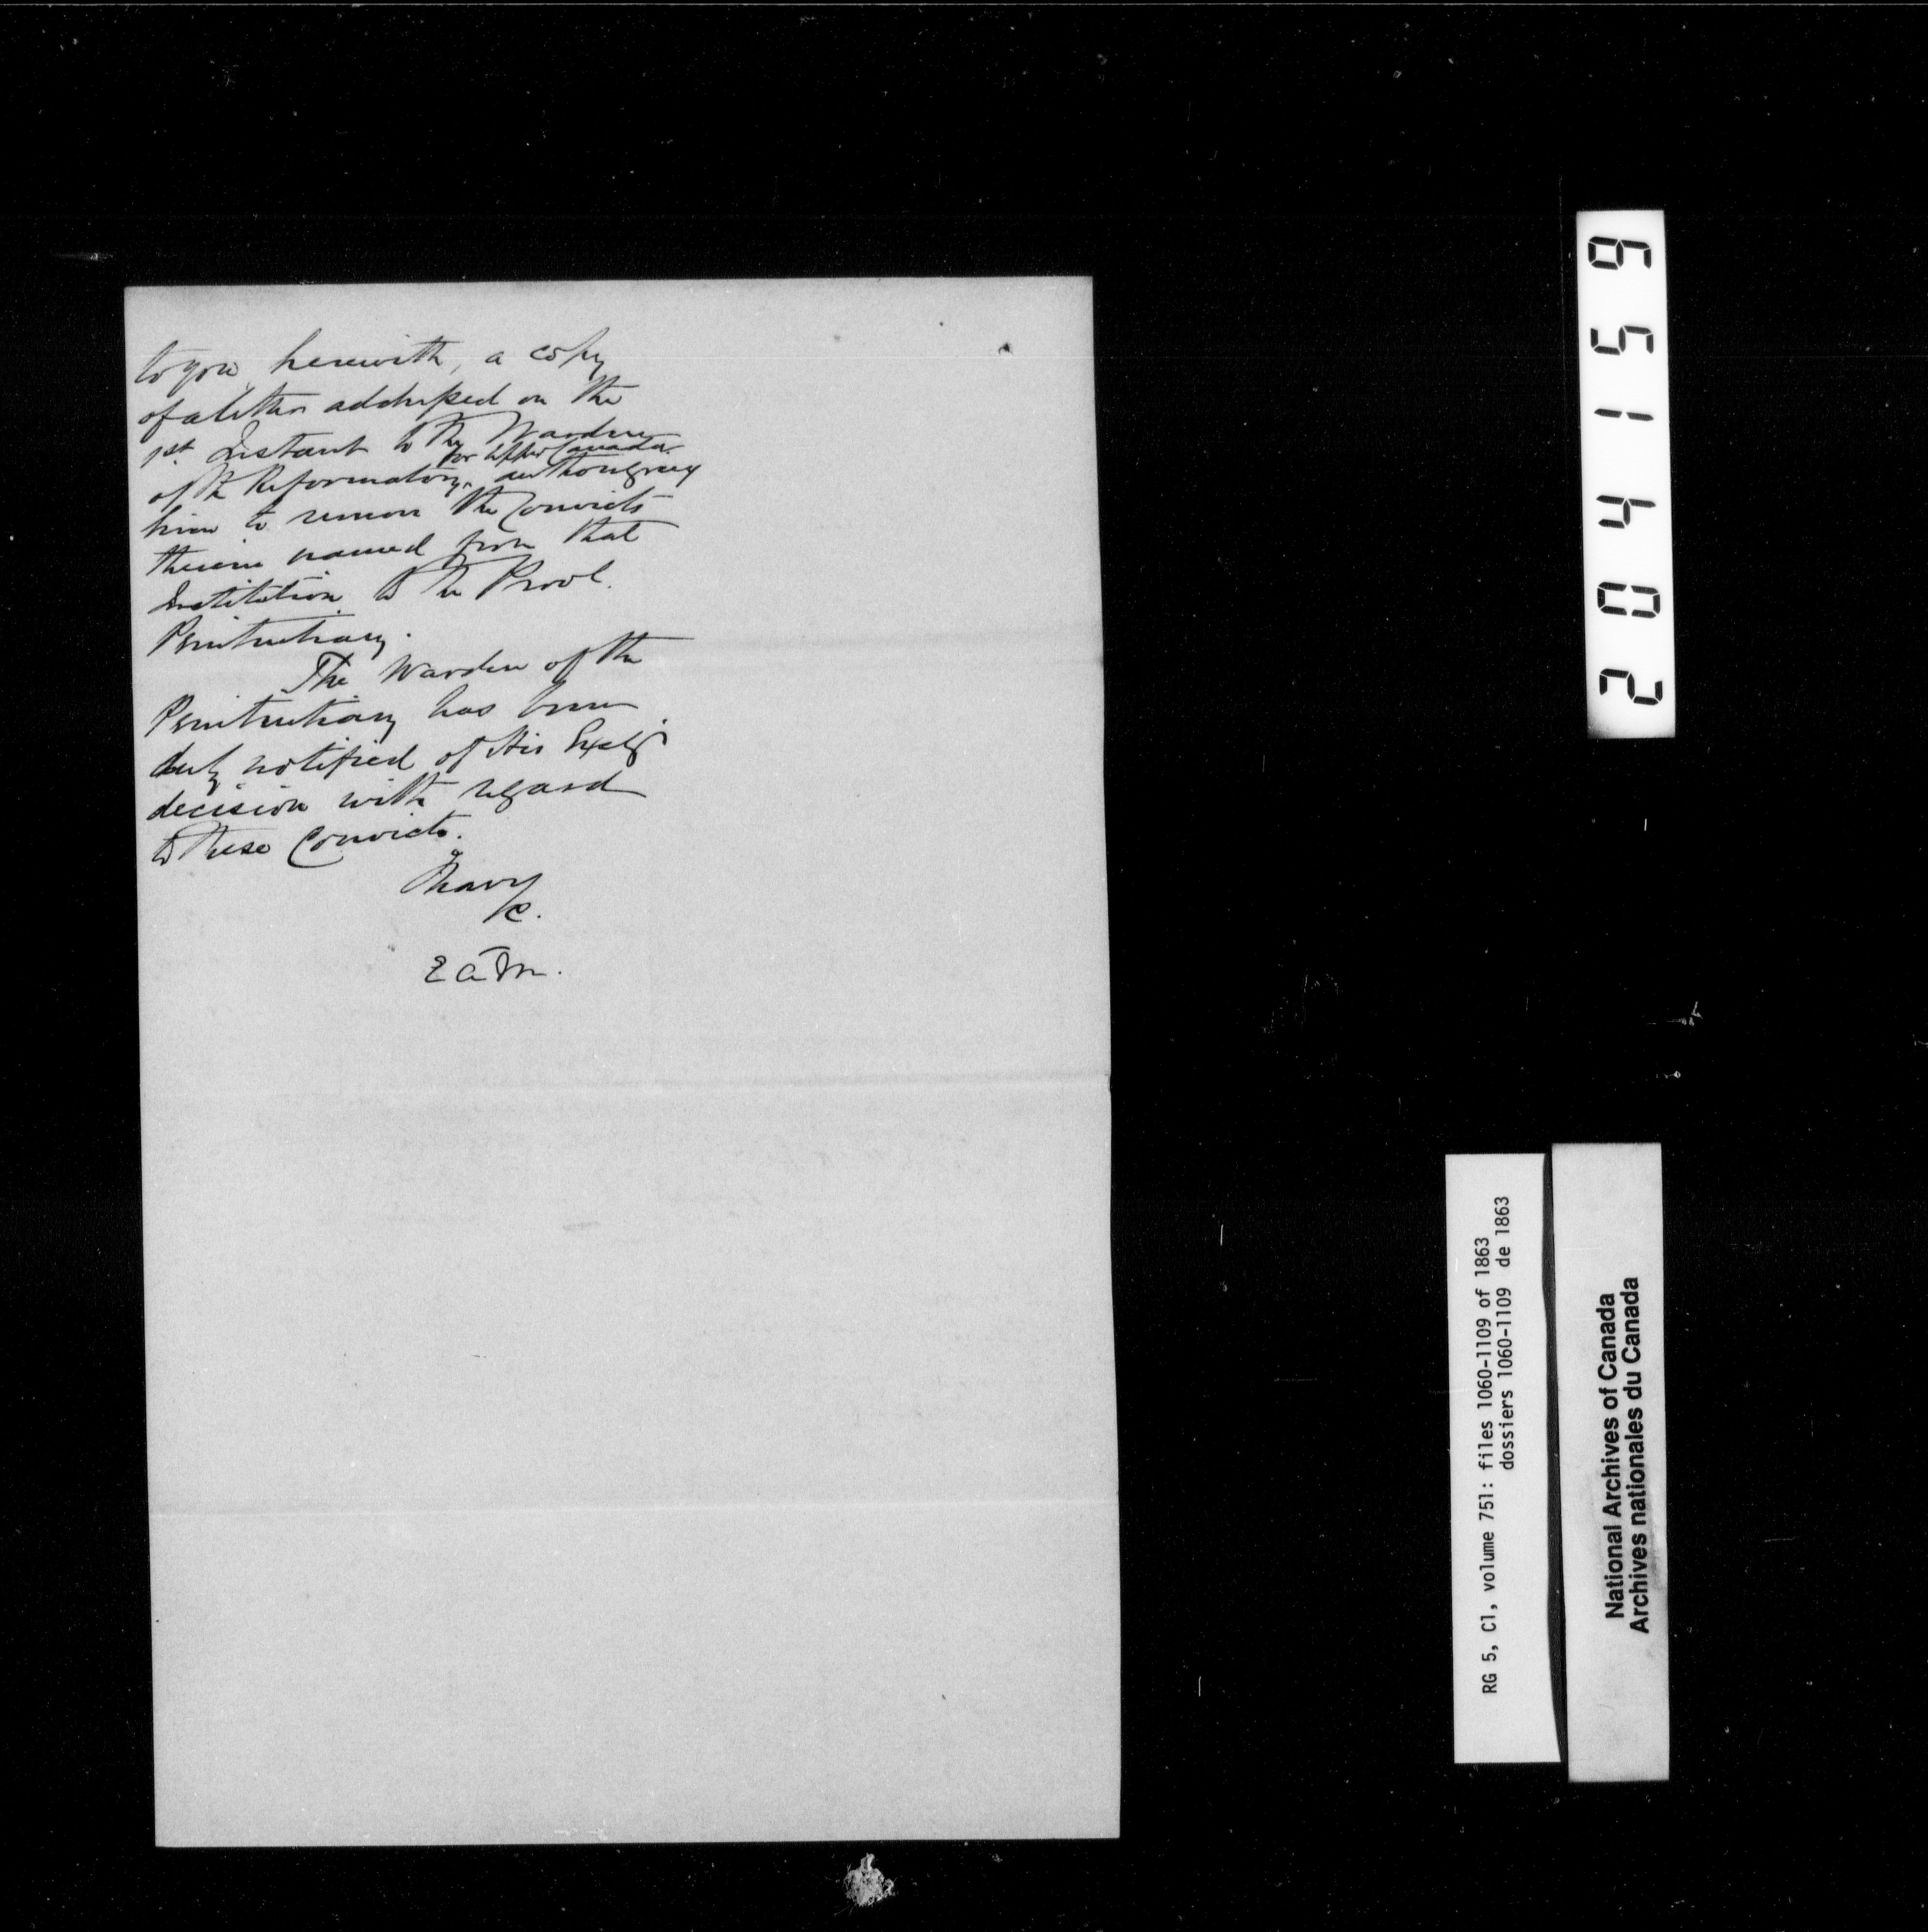 to you herewith, a copy
of a letter addressed on the
1st. Instant to the Warden
for Upper Canada
of the Reformatory, authorizing
him to remove the Convicts
therein named from that
Institution to the Provl.
Penitentiary.
The Warden of the
Penitentiary has been
duly notified of His Excelys
decision with regard
to these Convicts.
I have
&c.
E A M.
204151 6
RG 5, C1, volume 751: files 1060-1109 of 1863
dossiers 1060-1109 de 1863
National Archives of Canada
Archives nationales du Canada